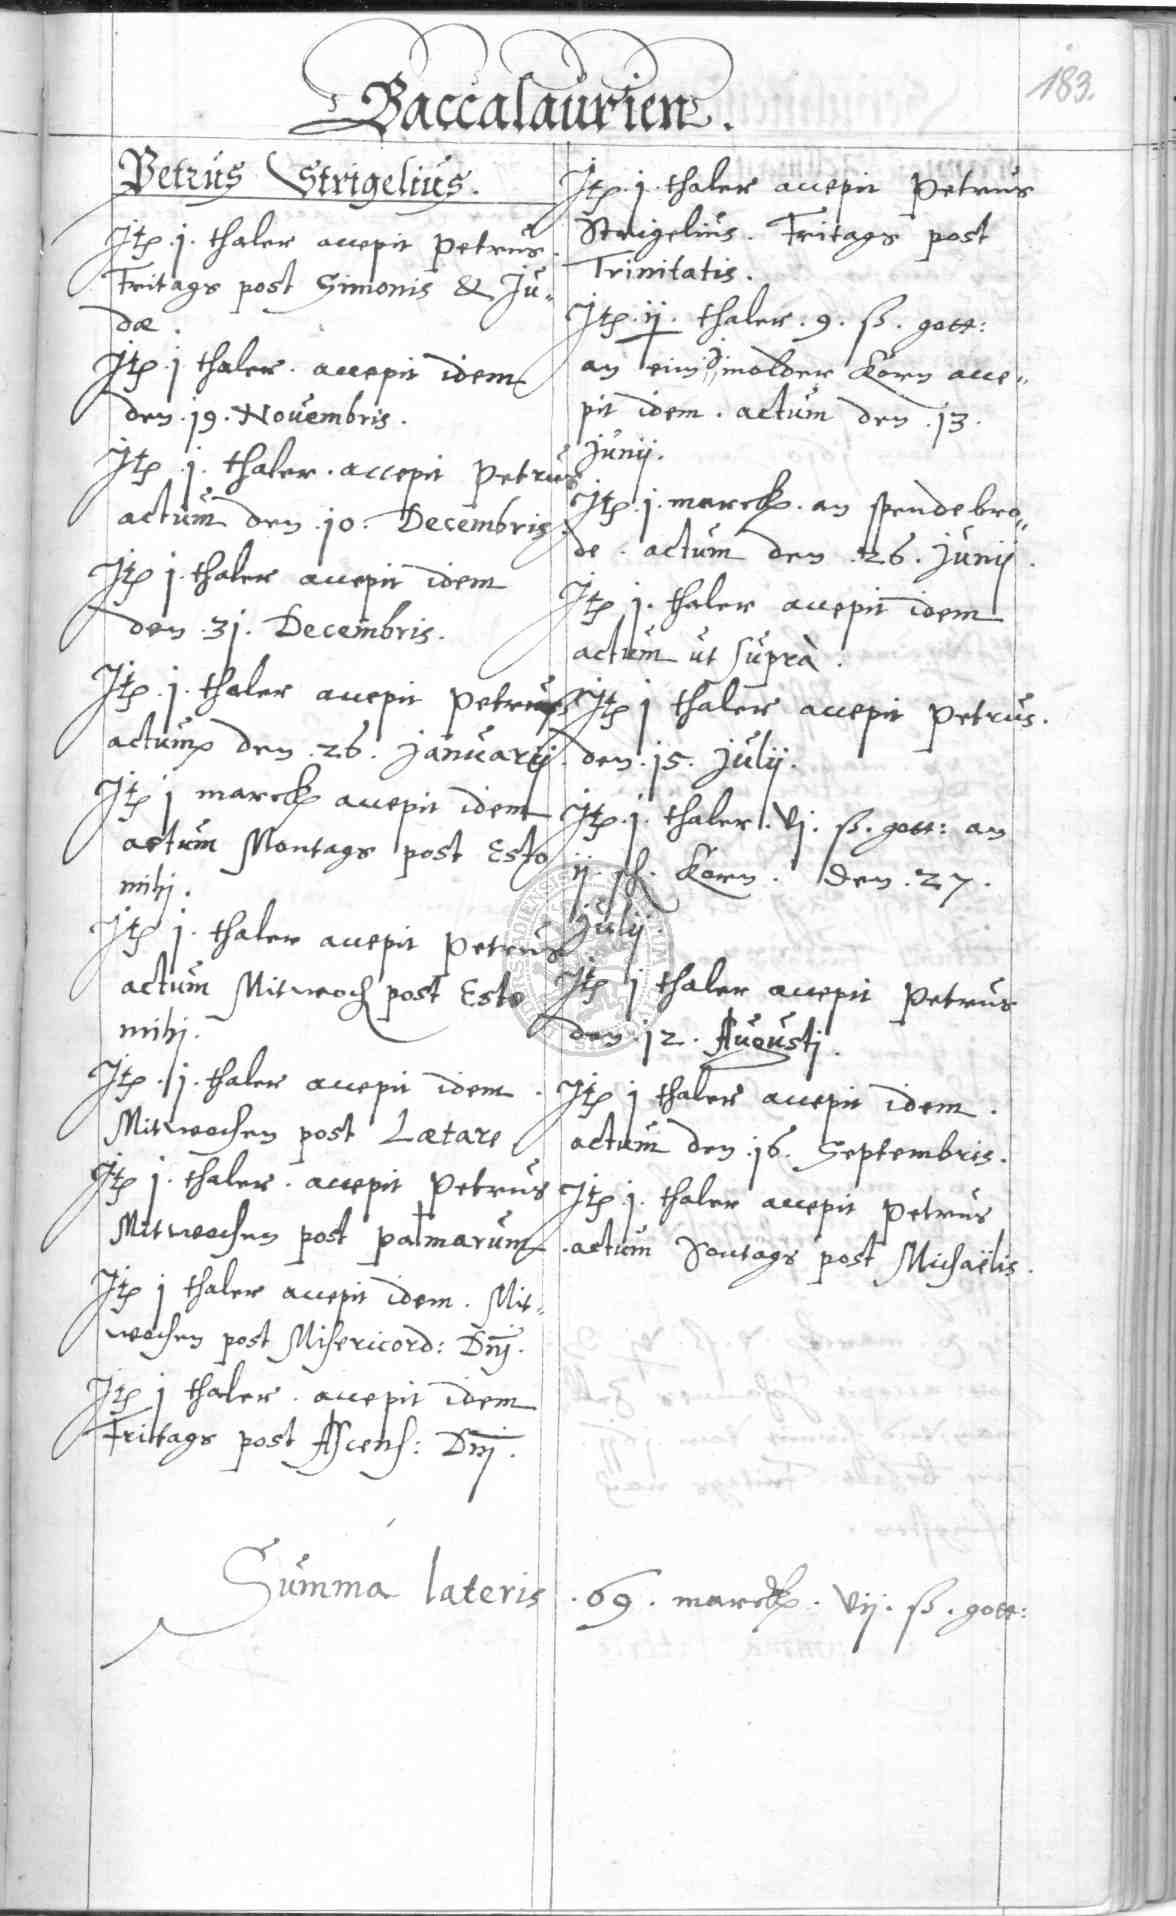 183.
Baccalaurien.
Petrus Strigelius.
Itp. j. thaler accepit Petrus
Fritags post Simonis & Ju„
dæ.
Itp. j thaler. accepit idem
den. 19. Novembris.
Itp j. thaler. accepit Petrus
actum den. 10. Decembris.
Itp j. thaler accepit idem
den. 31. Decembris.
Itp. j. thaler accepit Petrus
actum den. 26. Januarij.
Itp j marck accepit idem
actum Montags post Esto
mihj.
Itp j. thaler accepit Petrus
actum Mitwoch post Esto
mihj.
Itp. j. thaler accepit idem.
Mitwochen post Lætare
Itp j. thaler. accepit Petrus
Mitwochen post palmarum
Itp j thaler accepit idem. Mit„
wochen post Misericord: Dnj.
Itp j thaler. accepit idem
Frittags post Ascens: Dnj.
Itp. j. thaler accepit Petrus
Strigelius. Fritags post
Trinitatis.
Itp. ij. thaler. 9. ß. gott:
an eim molder Korn acce„
pit idem. actum den. 13.
Junij.
Itp. j. marck. an spendebro„
de. actum den. 26. Junij.
Itp j. thaler accepit idem
actum ut suprà.
Itp j thaler accepit Petrus.
den. 15. Julij.
Itp. j. thaler. vj. ß. gott: an
ij. sch. Korn. den. 27.
Julij.
Itp j thaler accepit Petrus
den. 12. Augustj.
Itp j thaler accepit idem.
actum den. 16. Septembris.
Itp. j. thaler accepit Petrus
actum Sontags post Michaëlis.
Summa lateris. 69. marck. vij. ß. gott: